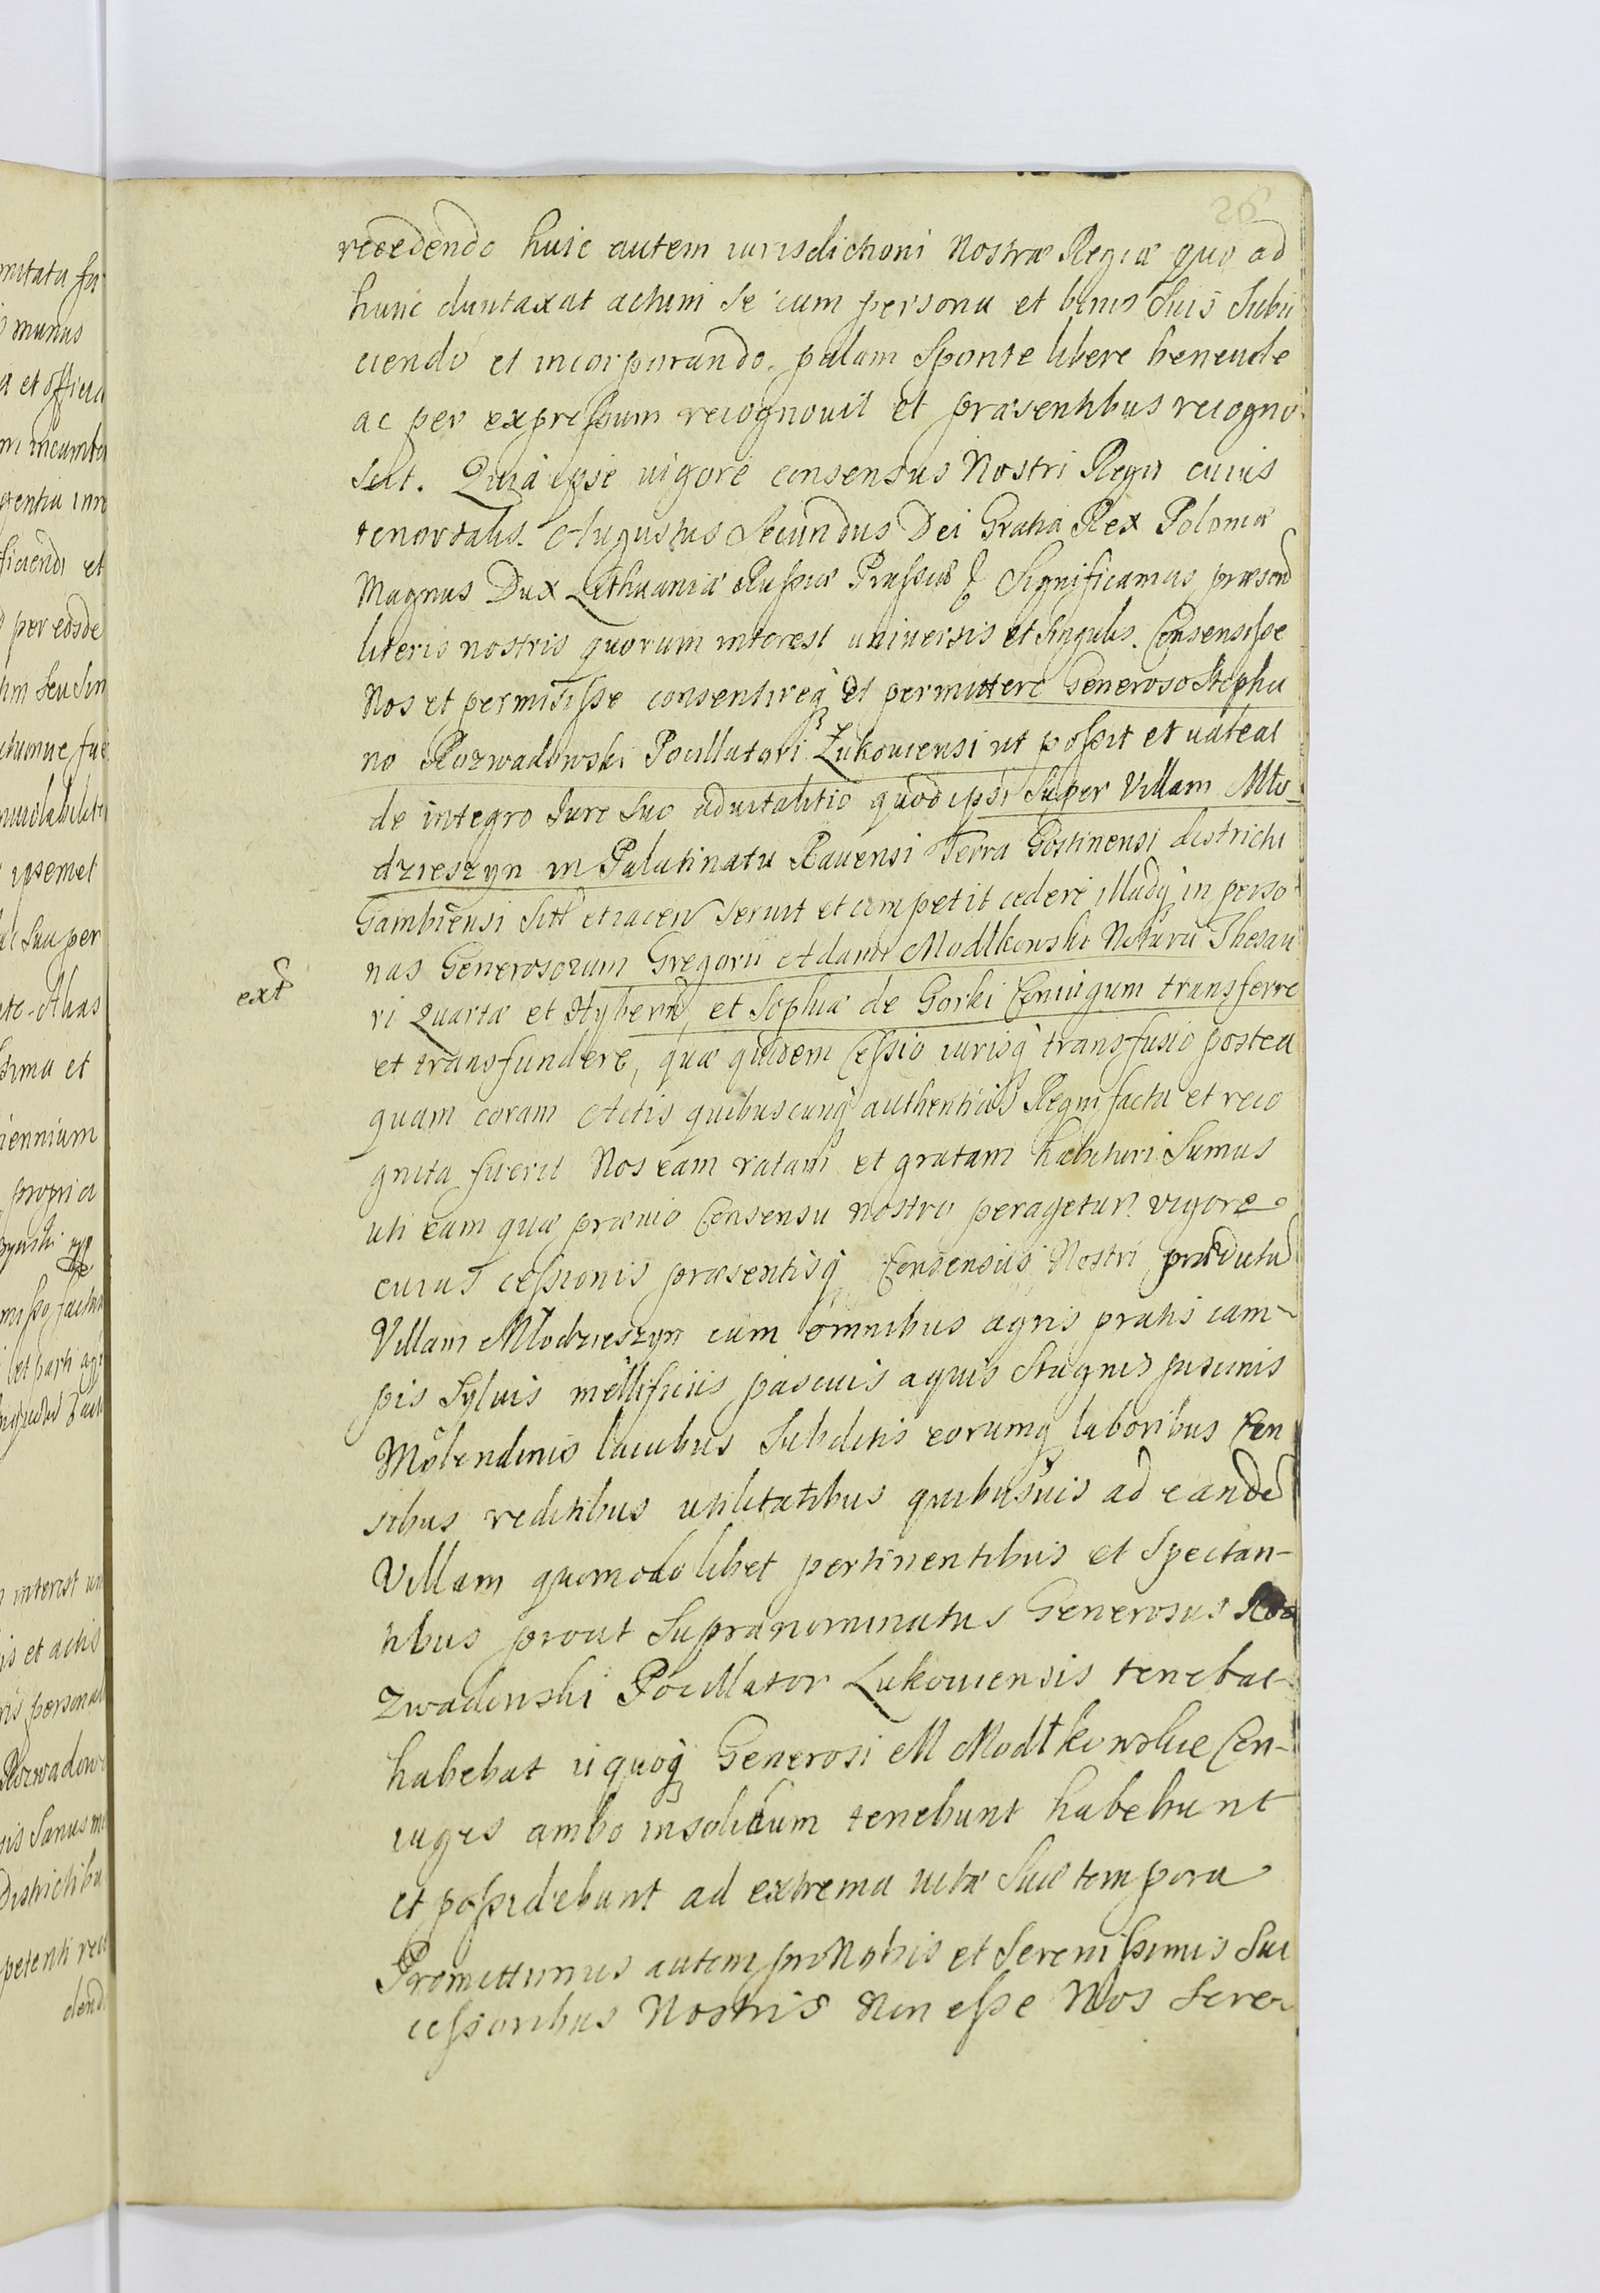 26
recedendo huic autem iurisdictioni Nostræ Regiæ quo ad
hunc duntaxat actum se cum persona et bonis Suis Subii
ciendo et incorporando, palam Sponte libere beneuole
ac per expressum recognouit et præsentibus recogno
scit. Quia ipse uigore consensus Nostri Regii cuius
tenor talis. Augustus Secundus Dei Gratia Rex Poloniæ
Magnus Dux Lithuaniæ Russiæ Prussiæ & Significamus præsend
literis nostris quorum interest uniuersis et Singulis. Consensisse
Nos et permisisse consentireq et permittere Generoso Stepha
no Rozwadowski Pocillatori Łukouiensi ut possit et ualeat
de integro Iure Suo aduitalitio quod ipsi Super Villam Mło
dzieszyn in Palatinatu Rauensi Terra Gostinensi districtu
Gambinensi Sitt et iacen Seruit et competit cedere illudq in perso
nas Generosorum Gregorii Adami Modlkowski Notarii Thesau
ext
ri Quartæ et Hybern, et Sophiæ de Gorki Coniugum transferre
et transfundere, quæ quidem Cessio iurisq transfusio postea
quam coram Actis quibuscunq authenticis Regni facta et reco
gnita fuerit Nos eam ratam et gratam habituri Sumus
uti eam quæ præuio Consensu nostro peragetur. vigore
cuius cessionis præsentisq Consensus Nostri prædicta
Villam Młodzieszyn cum omnibus agris pratis cam-
pis Syluis mellificiis pascuis aquis Stagnis piscinis
Molendinis lacubus Subditis eorumq laboribus Cen
sibus reditibus utilitatibus quibusuis ad eande
Villam quomodolibet pertinentibus et Spectan-
tibus prout Supranominatus Generosus Ro
zwadowski Pocillator Lukouiensis tenebat
habebat ii quoq Generosi M Modłkowskie Con-
iuges ambo insolidum tenebunt habebunt
et possidebunt ad extrema uitæ Suæ tempora
Promittimus autem pro Nobis et Serenissimis Suc
cessoribus Nostris Non esse Nos Seren